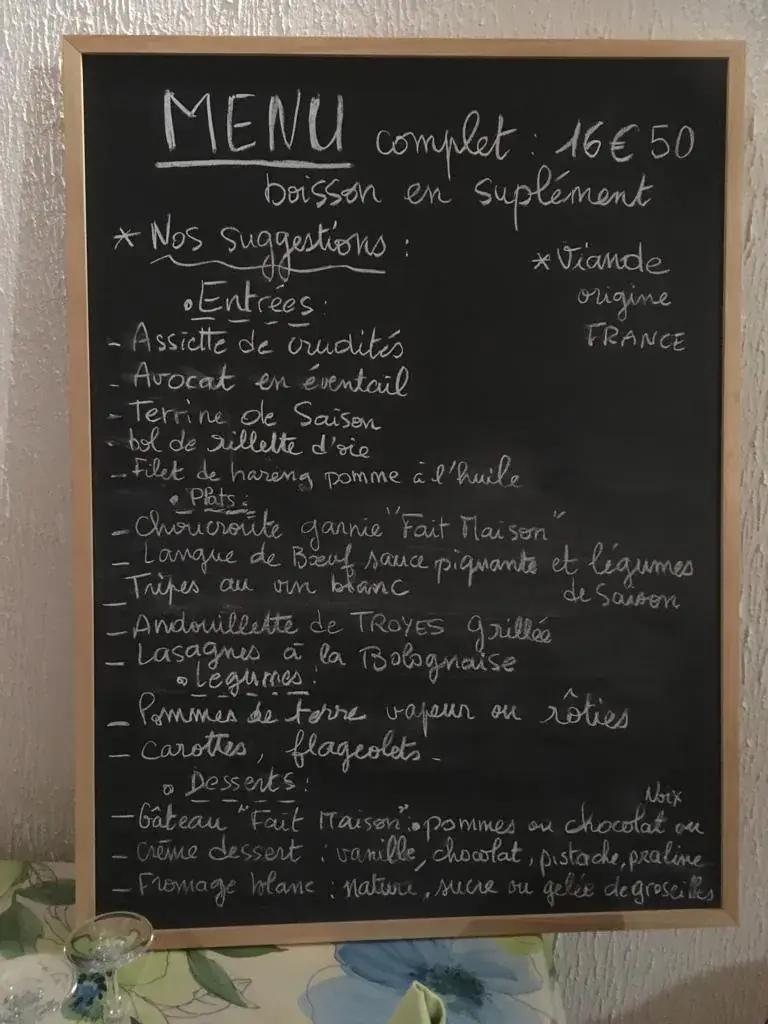 MENU complet : 16€50
boisson en suplément
* Nos suggestions :
* Viande
origine
FRANCE
• Entrées :
- Assiette de crudités
- Avocat en éventail
- Terrine de Saison
- bol de rillette d'oie
- Filet de hareng pomme à l'huile
• Plats :
- Choucroute garnie "Fait Maison"
- Langue de Bœuf sauce piquante et légumes
de Saison
- Tripes au vin blanc
- Andouillette de TROYES grillée
- Lasagnes à la Bolognaise
• Légumes :
- Pommes de terre vapeur ou rôties
- carottes, flageolets -
• Desserts :
- Gâteau "Fait Maison" • pommes ou chocolat ou
Noix
- Crème dessert : vanille, chocolat, pistache, praline
- Fromage blanc : nature, sucre ou gelée de groseilles